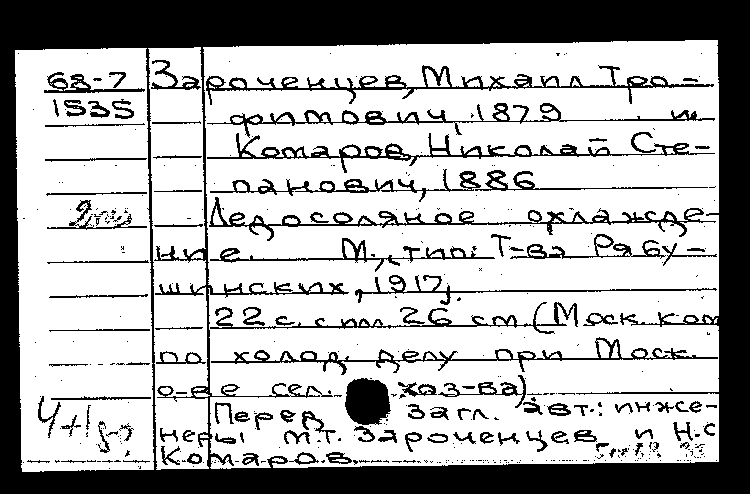 68-7
1535
Зароченцев, Михаил Тро-
фимович, 1879 и
Комаров, Николай Сте-
панович, 1886
Ледосоляное охлажде-
ние. М., тип. Т-ва Рябу-
шинских, 1917.
22 с. с ил. 26 см. (Моск. ком
по холод. делу при Моск.
о-ве сел. хоз-ва)
Перед загл. авт.: инже-
неры М.Т. Зароченцев и Н.С
Комаров.